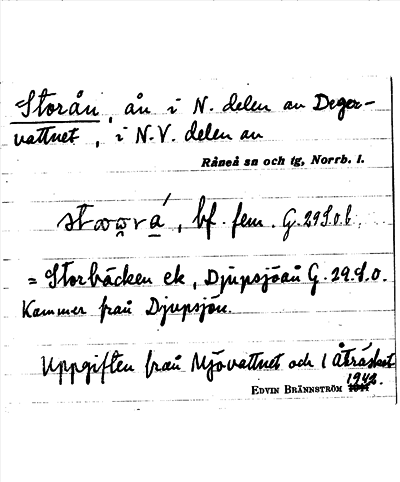 Storån, ån i N. delen av Deger-
vattnet, i N.V. delen av
Råneå sn och tg, Norrb. l.
bf. fem. G. 29 S.o.b.
= Storbäcken ek, Djupsjöån G. 29. S.o.
Kammer från Djupsjön.
Uppgiften från Mjövattnet och i Åträsket
1942.
EDVIN BRÄNNSTRÖM